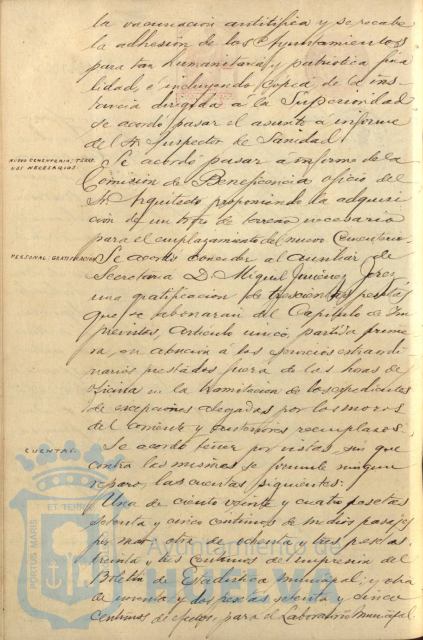 la vacunación antitífica y se recabe
la adhesión de los Ayuntamientos
para tan humanitaria y patriótica fina
lidad, é incluyendo copia de la ins
tancia dirigida á la Superioridad
se acordó pasar el asunto á informe
del Sr. Inspector de Sanidad.
NUEVO CEMENTERIO; TERRE-
NOS NECESARIOS.
Se acordó pasar a informe de la
Comisión de Beneficencia oficio del
Sr. Arquitecto proponiendo la adquisi
ción de un trozo de terreno necesario
para el emplazamiento del nuevo Cementerio.
PERSONAL; GRATIFICACION
Se acordó conceder al auxiliar de
Secretaria D. Miguel Jimenez Jorez
una gratificacion de trescientas pesetas
que se abonarán del Capitulo de Im
previstos, artículo unico, partida prime
ra, en atención á los servicios extraordi
narios prestados fuera de las horas de
oficina en la tramitacion de los expedientes
de excepciones alegadas por los mozos
del corriente y anteriores reemplazos.
CUENTAS.
Se acordó tener por vistas, sin que
contra las mismas se formule ningun
reparo, las cuentas siguientes:
Una de ciento veinte y cuatro pesetas
setenta y cinco centimos de medios pasajes
por mar, otra de ochenta y tres pesetas
treinta y tres centimos del impresión del
Boletín de Estadistica municipal; y otra
de noventa y dos pesetas setenta y cinco
centimos de efectos para el Laboratorio Municipal.
PORTUS MARIS ET TERRÆ
Ayuntamiento de